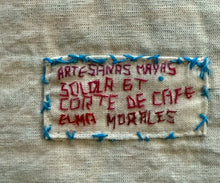 ARTESANAS MAYAS
SOLOLA ET
CORTE DE CAFE
ELMA MORALES